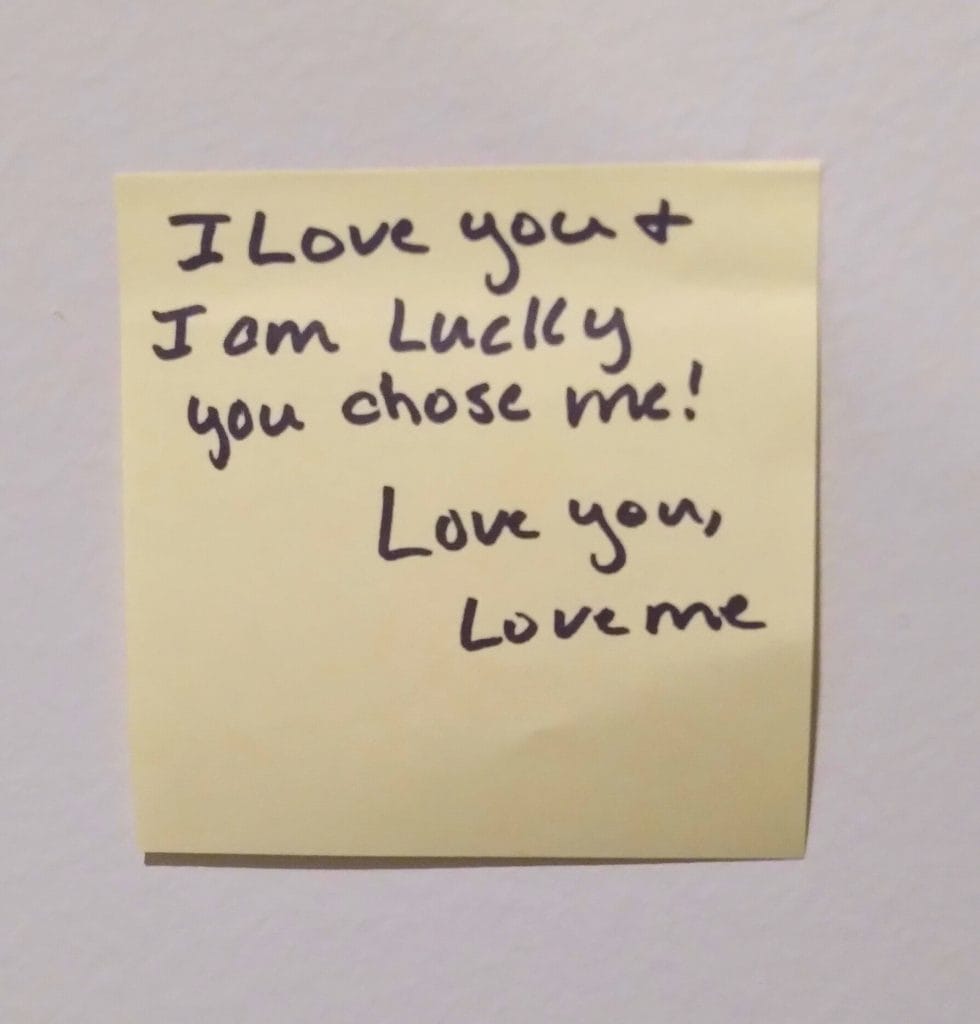 I Love you +
I am Lucky
you chose me!
Love you,
Love me